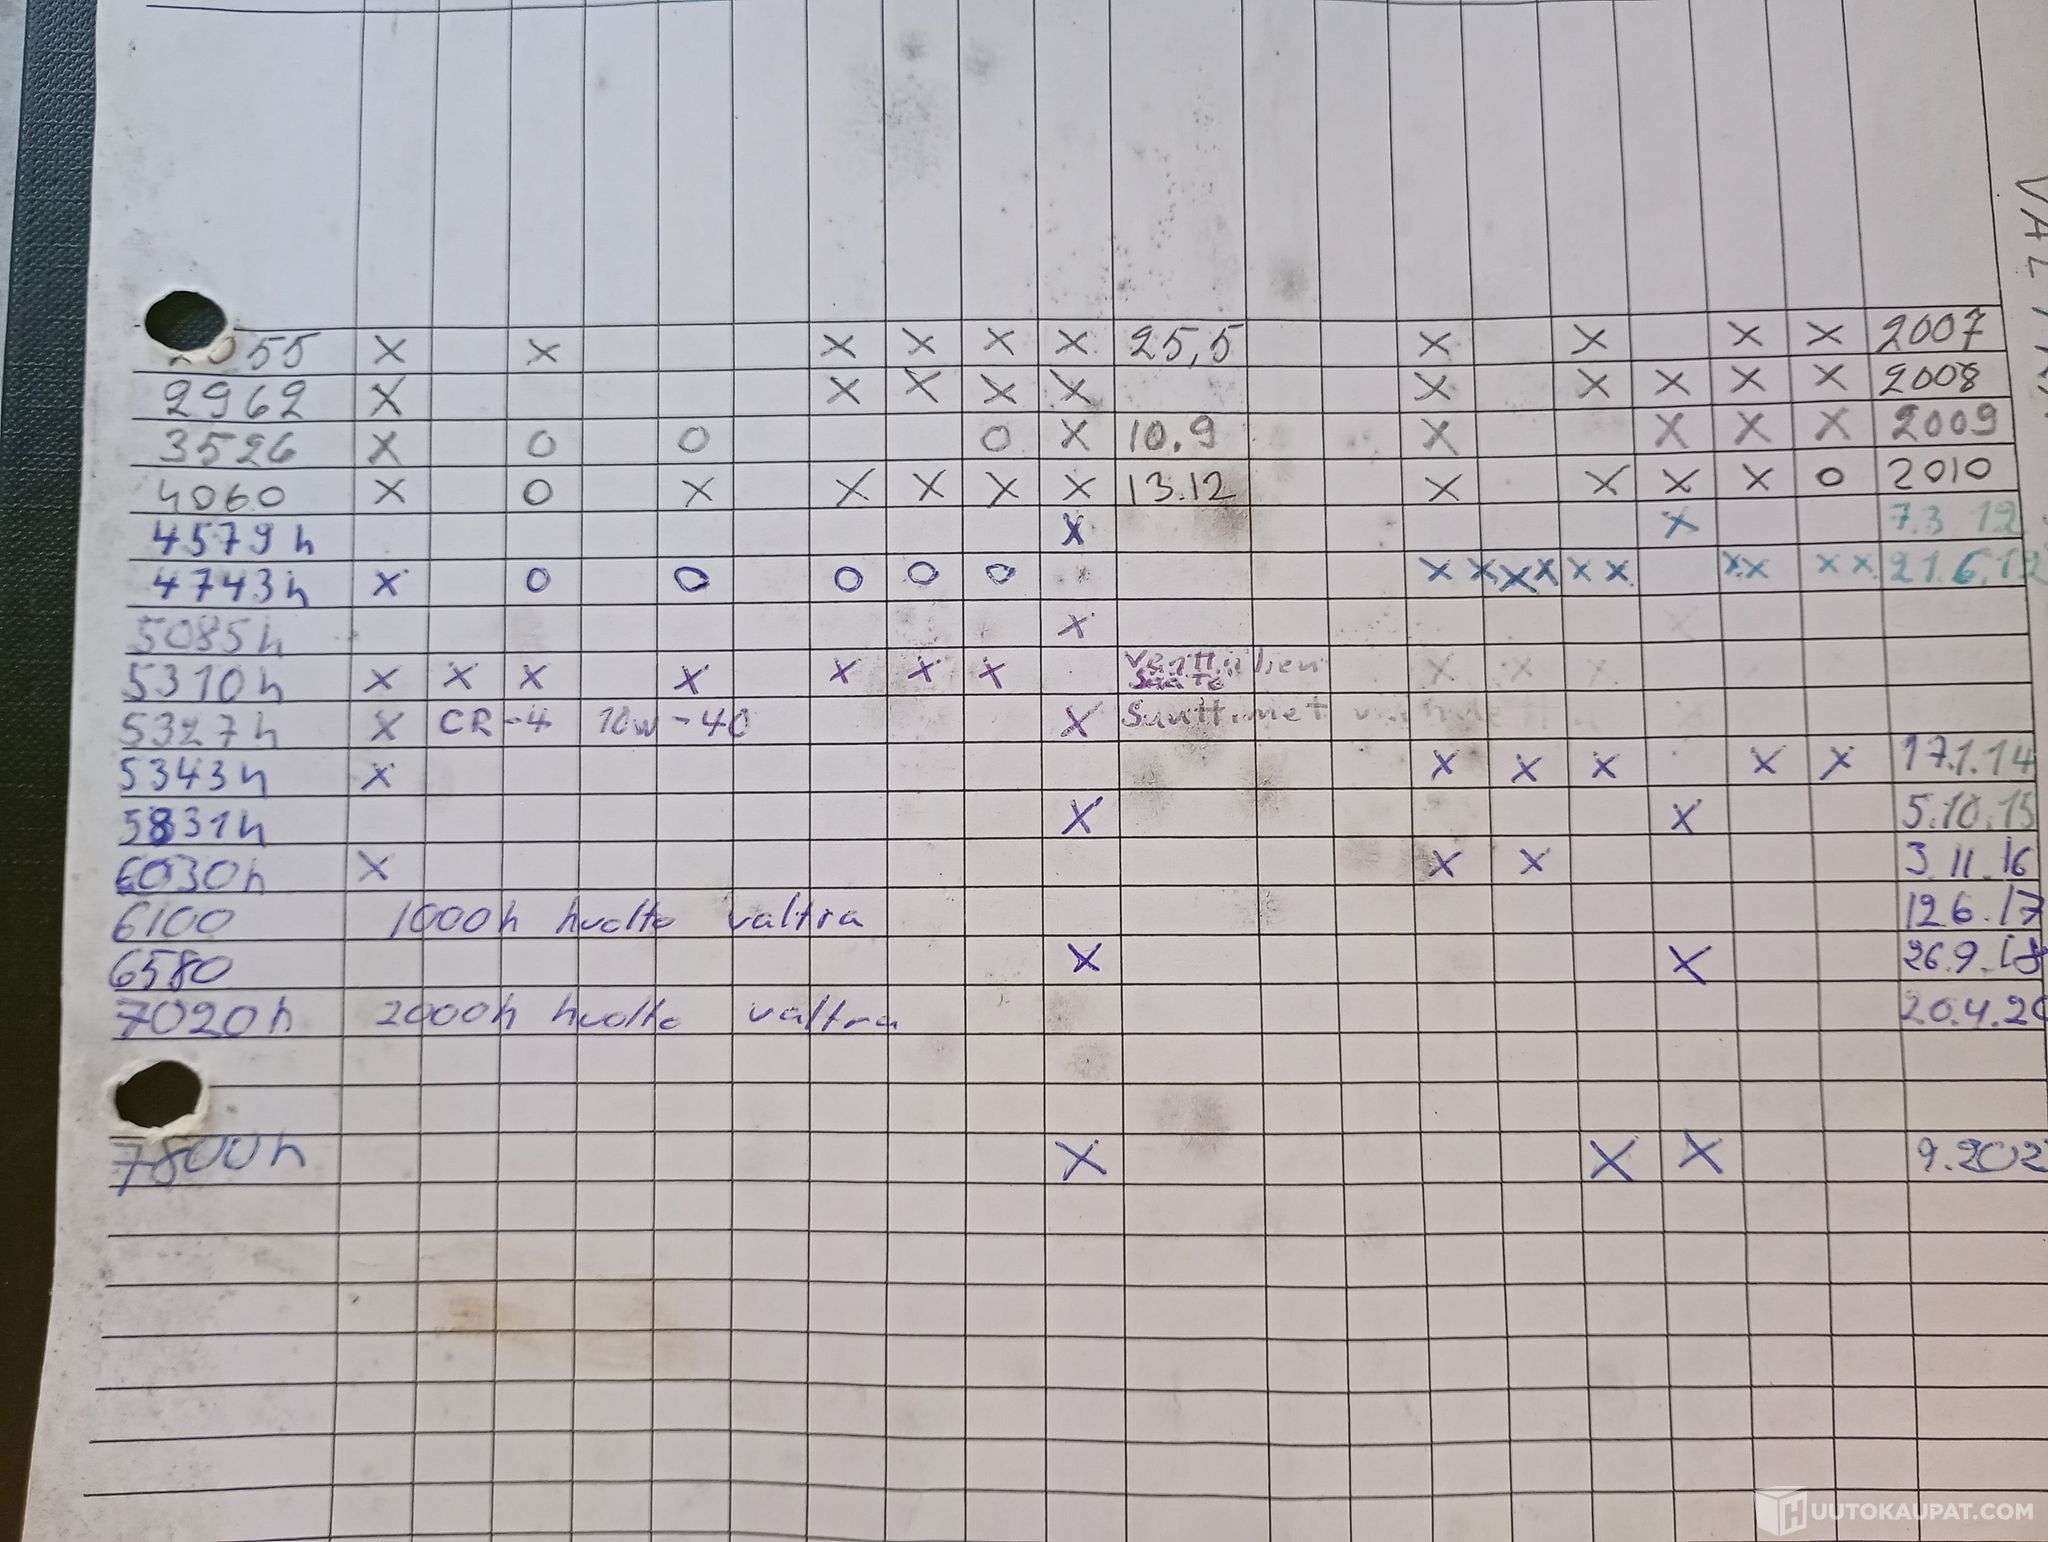 55 X X X X X X 25,5 X X X X 2007
2962 X X X X X X X X X X 2008
3526 X O O O X 10.9 X X X X 2009
4060 X O X X X X X 13.12 X X X X O 2010
4579h X X 7.3 12
4743h X O O O O O X X X X X X X X X X 21.6.12
5085h X X
5310h X X X X X X X Venttiilien Säätö X X X
5327h X CR-4 10W-40 X Sunttimet X
5343h X X X X X X 17.1.14
5831h X X 5.10.15
6030h X X X 3.11.16
6100 1000h huolto valtra 12.6.17
6580 X X 26.9.18
7020h 2000h huolto valtra 20.4.20
7800h X X X 9.202
HUUTOKAUPAT.COM